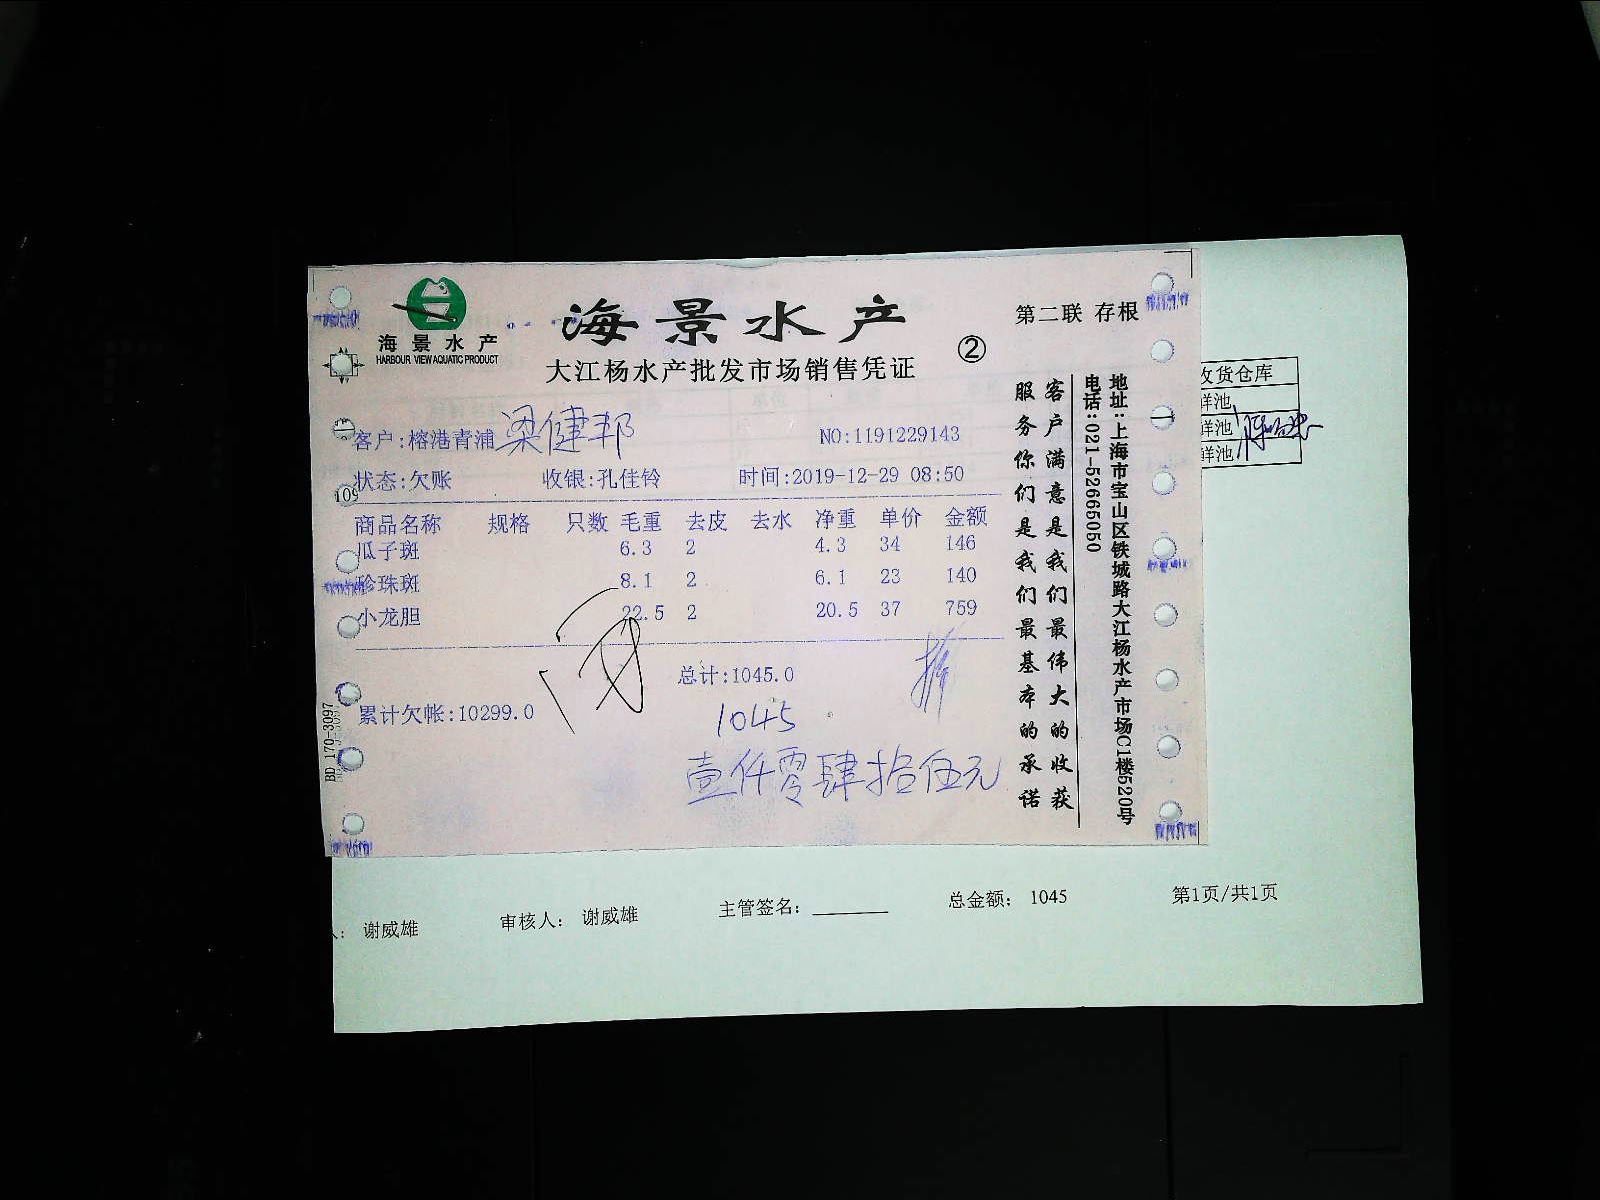 海景水产
HARBOUR VIEW AQUATIC PRODUCT
海景水产
大江杨水产批发市场销售凭证
②
第二联 存根
客户:榕港青浦 梁健邦
NO:1191229143
状态:欠账 收银:孔佳铃 时间:2019-12-29 08:50
109
商品名称 规格 只数 毛重 去皮 去水 净重 单价 金额
瓜子斑 6.3 2 4.3 34 146
珍珠斑 8.1 2 6.1 23 140
小龙胆 22.5 2 20.5 37 759
总计:1045.0
累计欠帐:10299.0
1045
壹仟零肆拾伍元
BD 170-3097
客户满意是我们最伟大的收获
服务你们是我们最基本的承诺
地址:上海市宝山区铁城路大江杨水产市场C1楼520号
电话:021-52665050
收货仓库
鲜池
鲜池
鲜池
谢威雄 审核人: 谢威雄 主管签名: 总金额: 1045 第1页/共1页